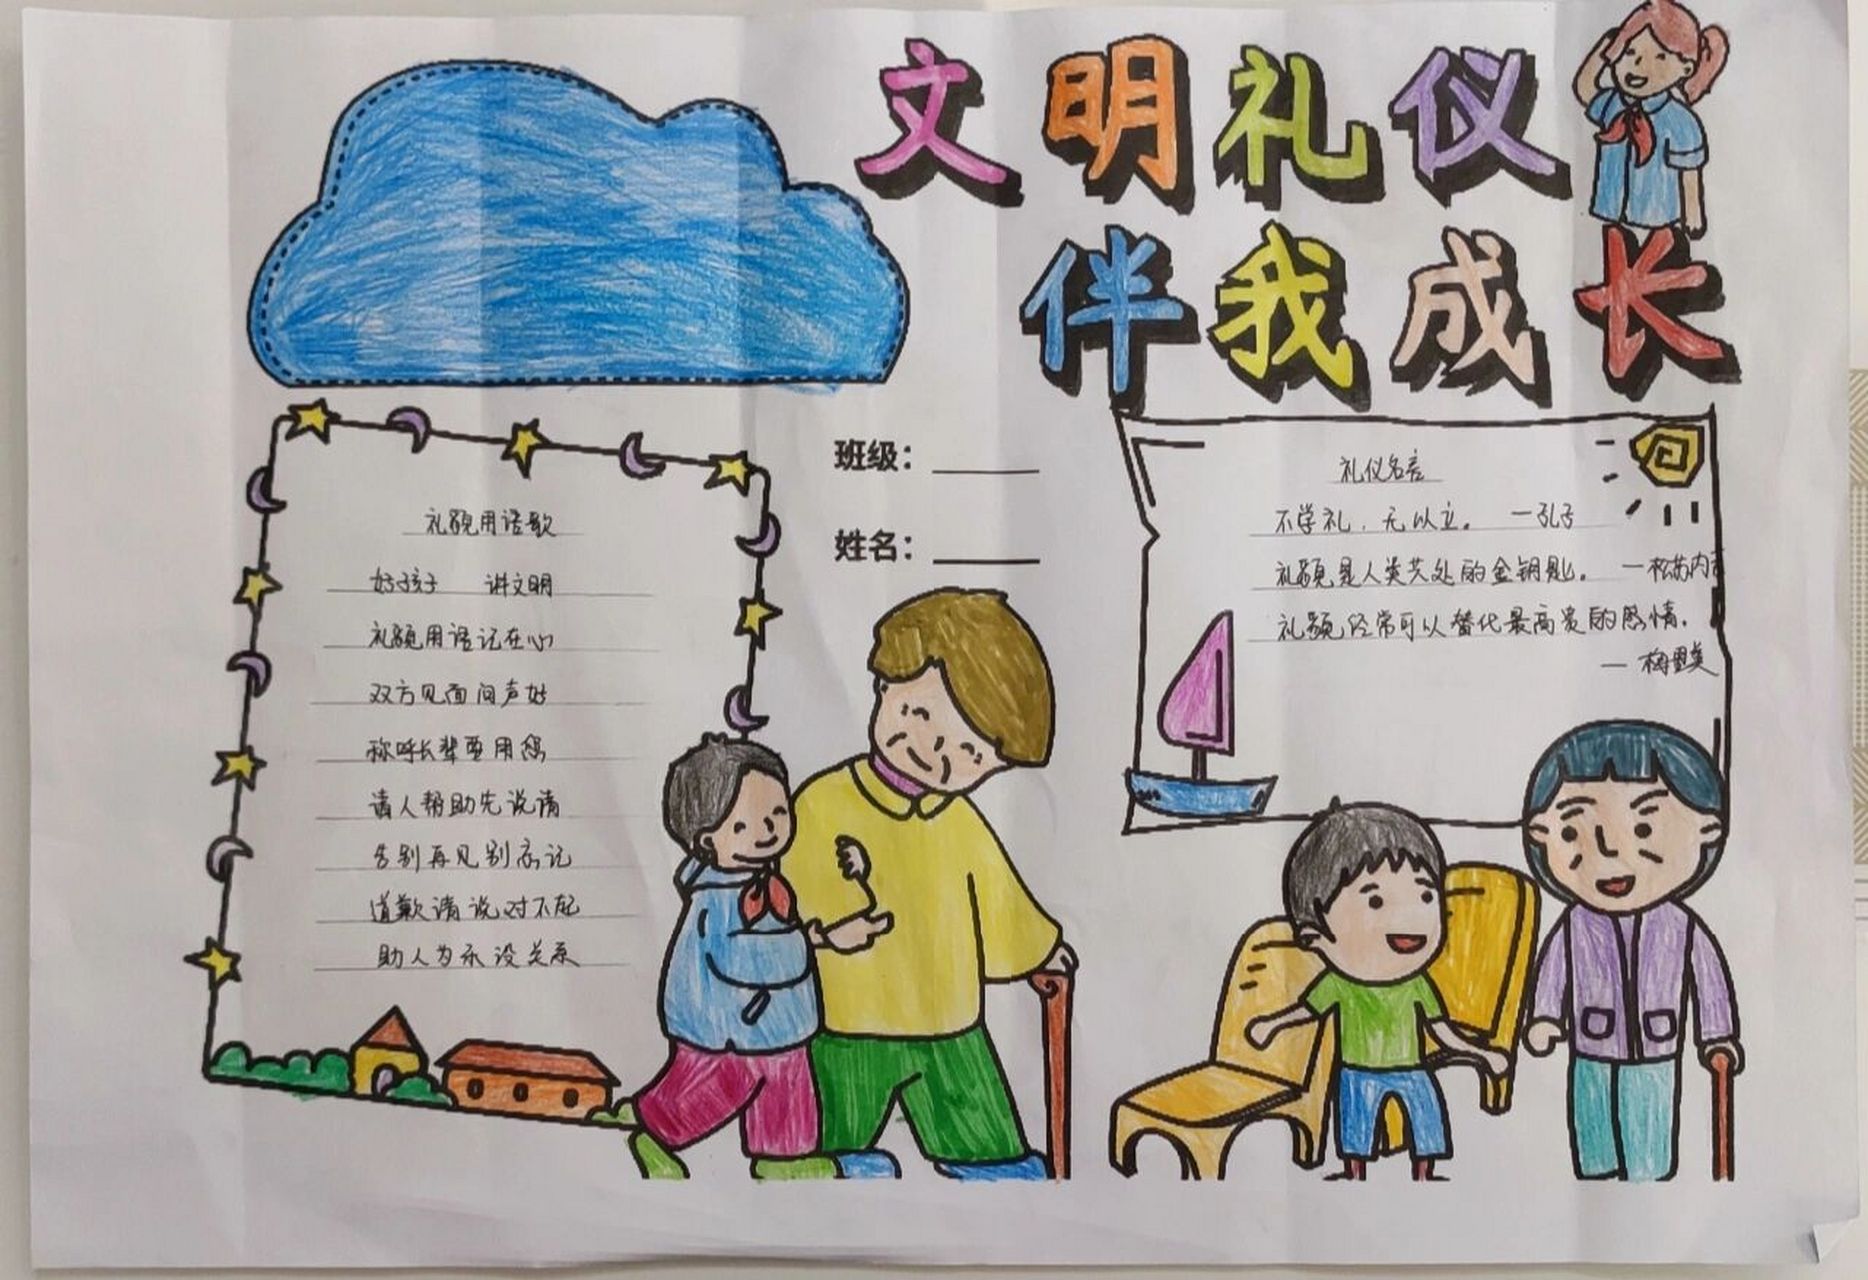 文明礼仪
伴我成长
班级：
姓名：
礼貌用语歌
好孩子 讲文明
礼貌用语记在心
双方见面问声好
称呼长辈要用您
请人帮助先说请
告别再见别忘记
道歉请说对不起
助人为乐没关系
礼仪名言
不学礼，无以立。 —孔子
礼貌是人类共处的金钥匙。 —松苏内
礼貌经常可以替代最高贵的感情。
— 梅里美